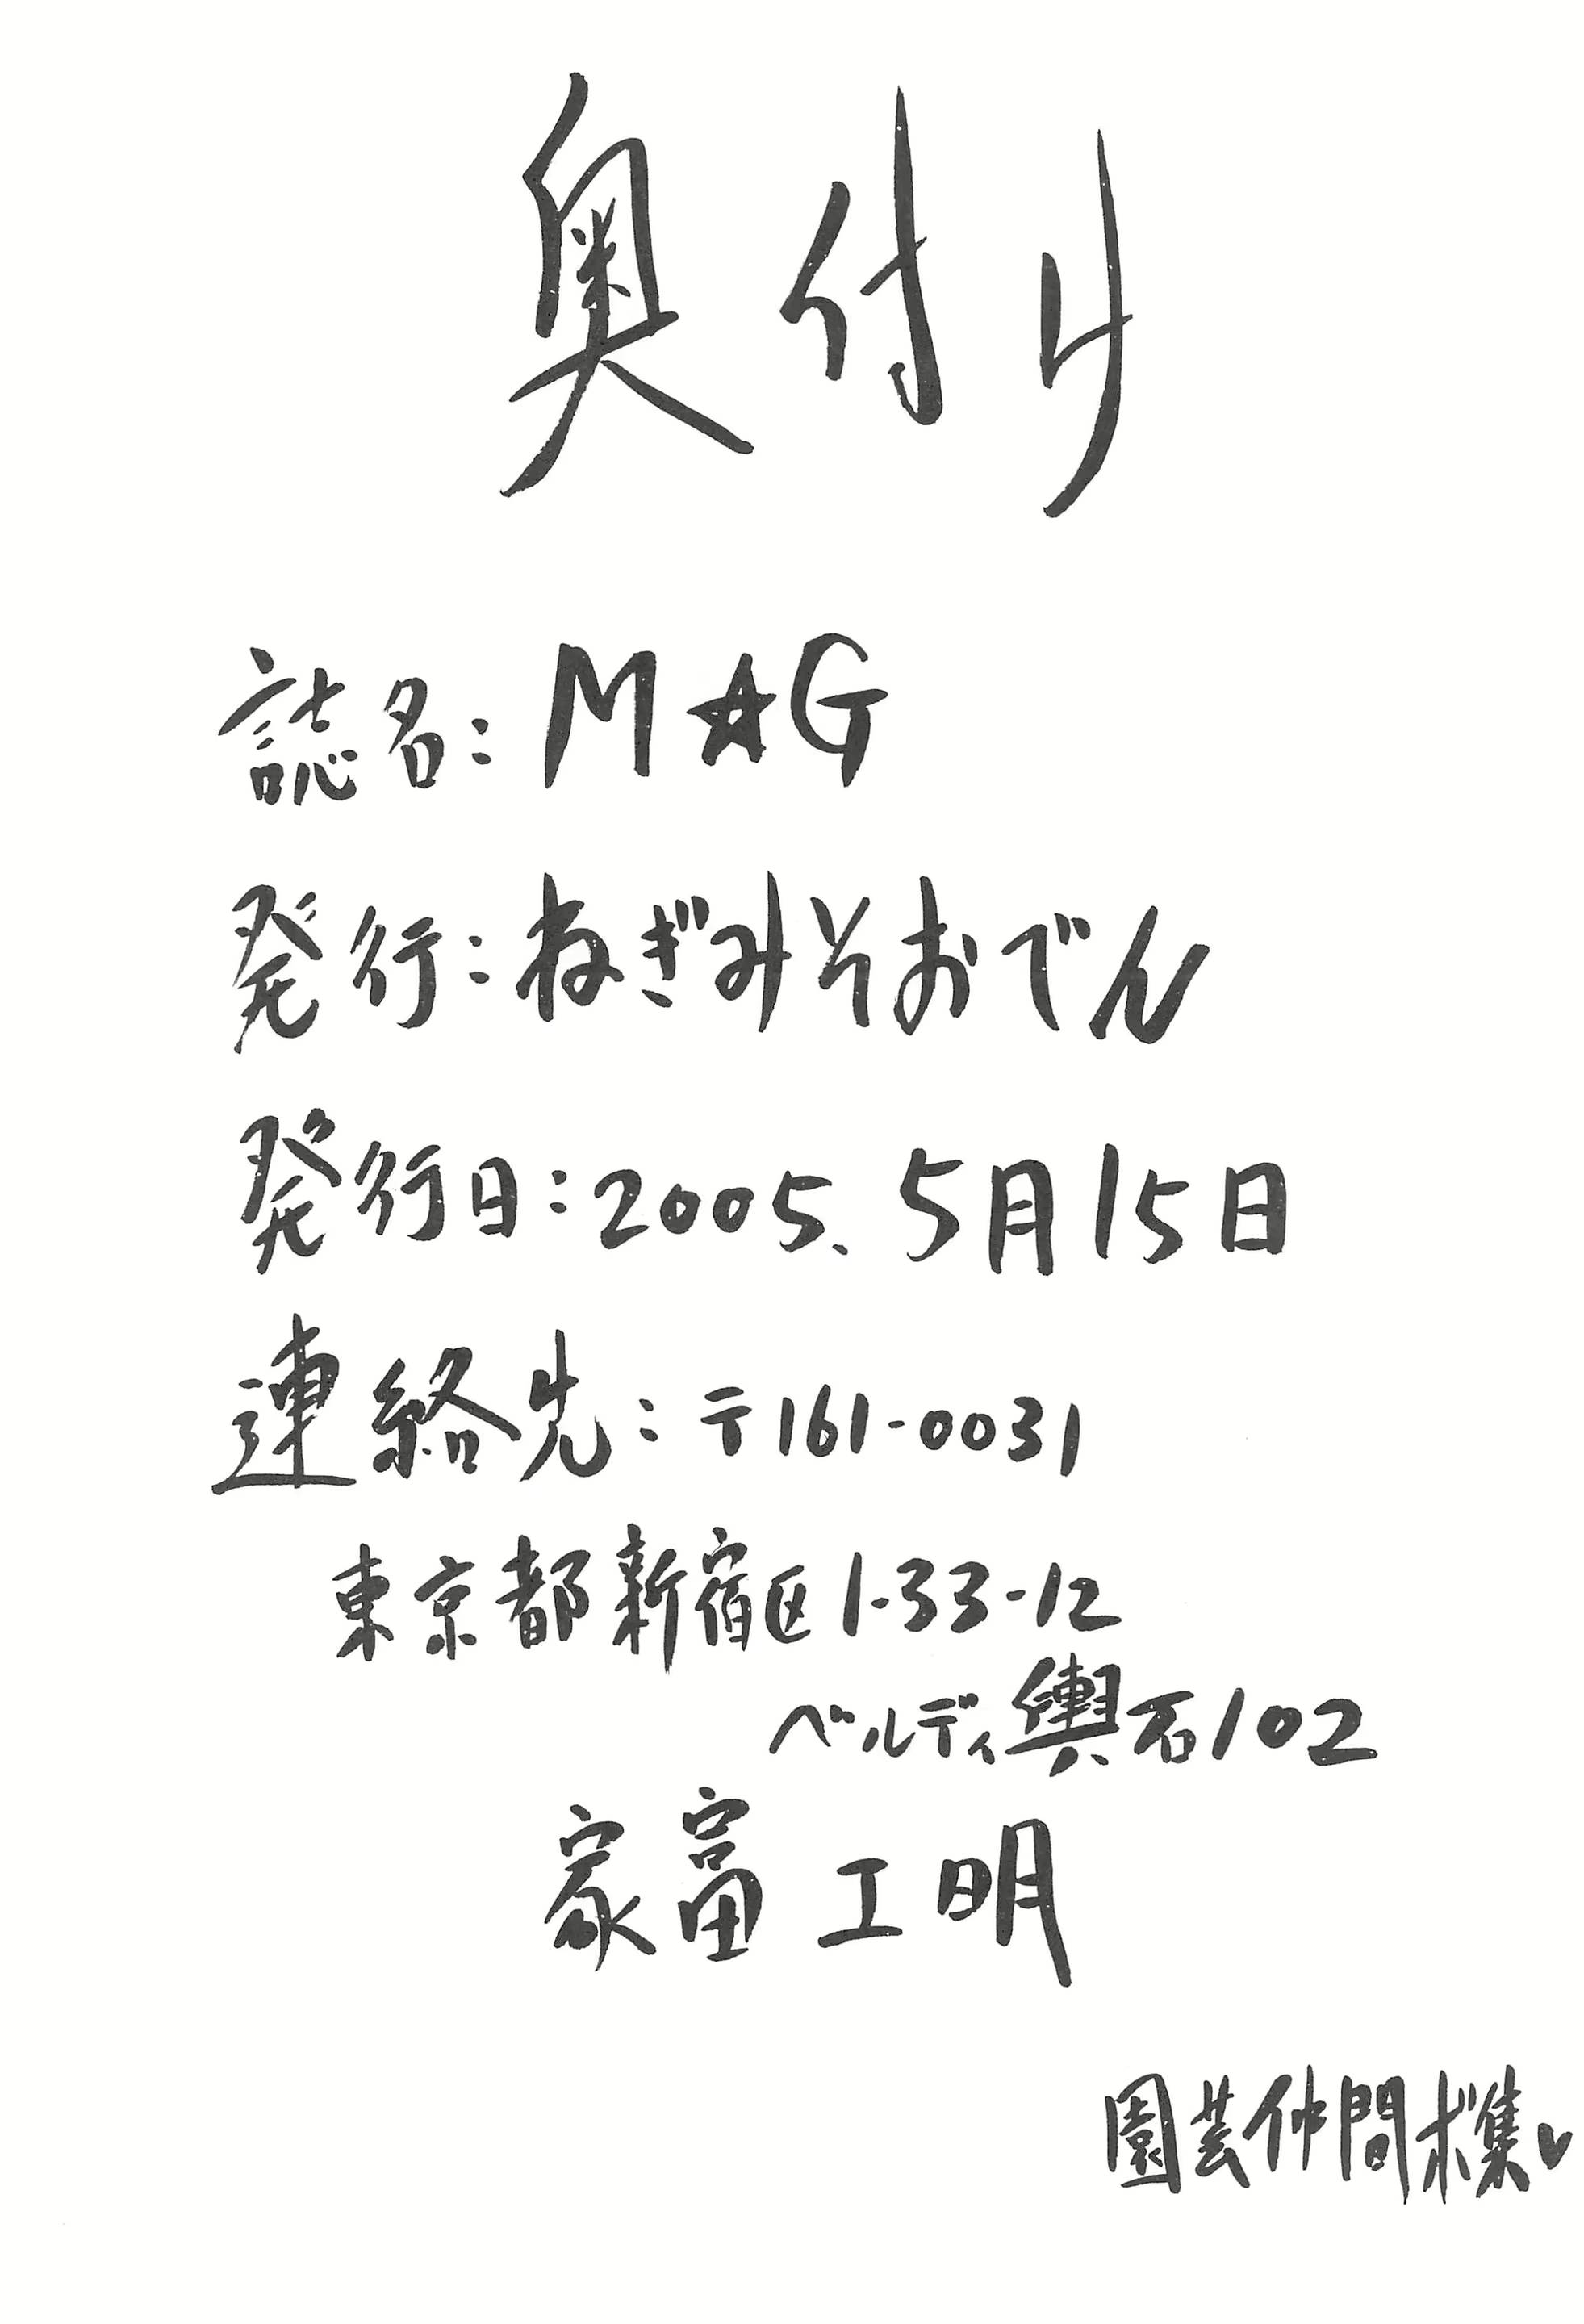 奥付け
誌名：M★G
発行：ねぎみそおでん
発行日：2005、5月15日
連絡先：〒161-0031
東京都新宿区1-33-12
ベルディ輿石102
家富工明
園芸仲間ボ集♥